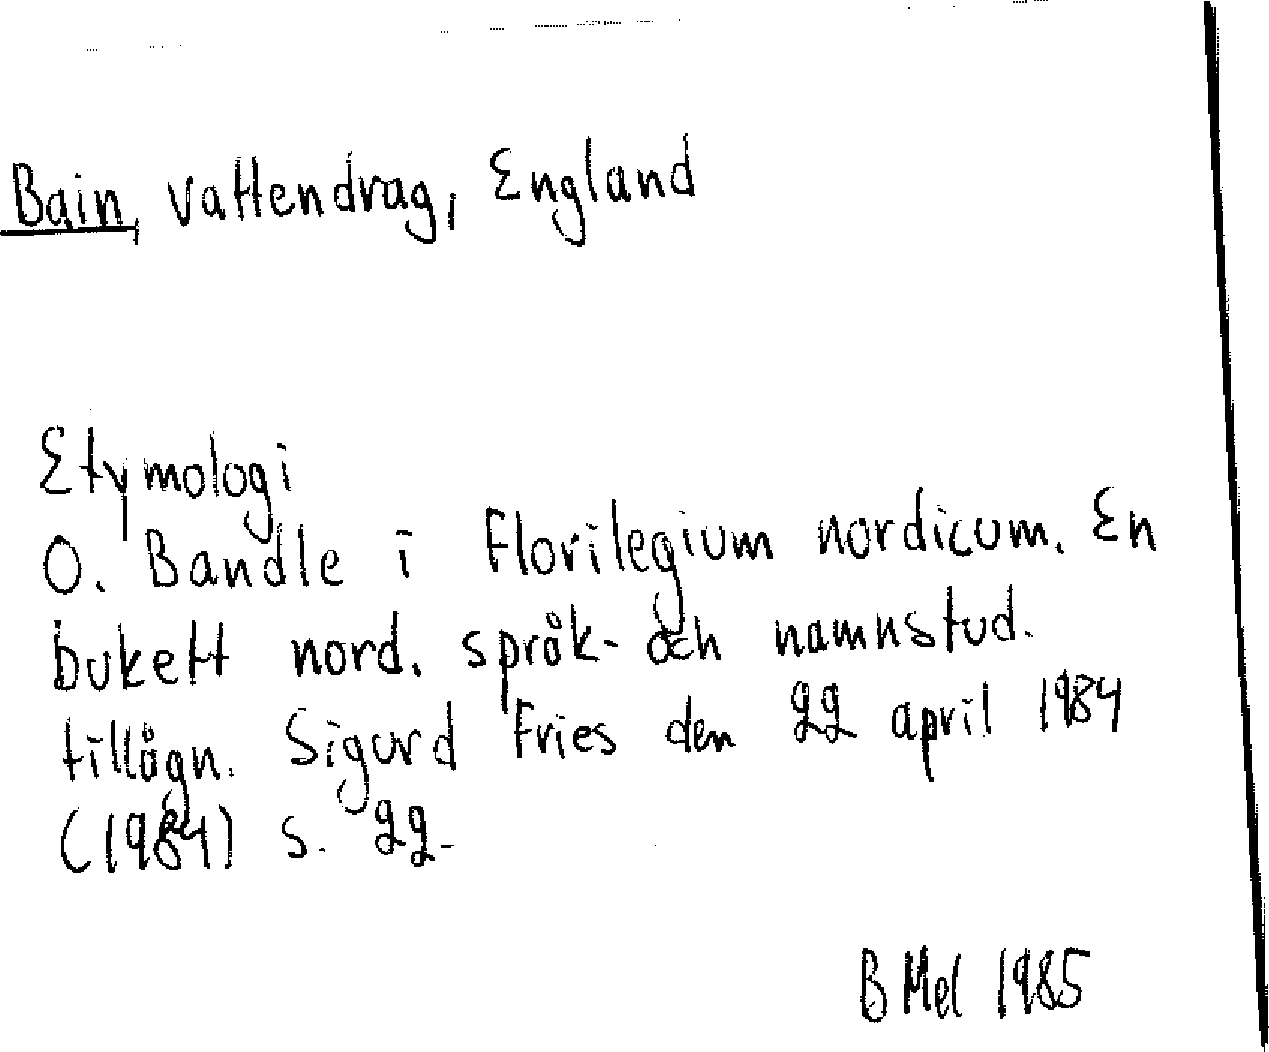 Bain, vattendrag, England
Etymologi
O. Bandle i Florilegium nordicum. En
bukett nord. språk- och namnstud.
tillägn. Sigurd Fries den 22 april 1984
(1984) s. 22.
B Mel 1985